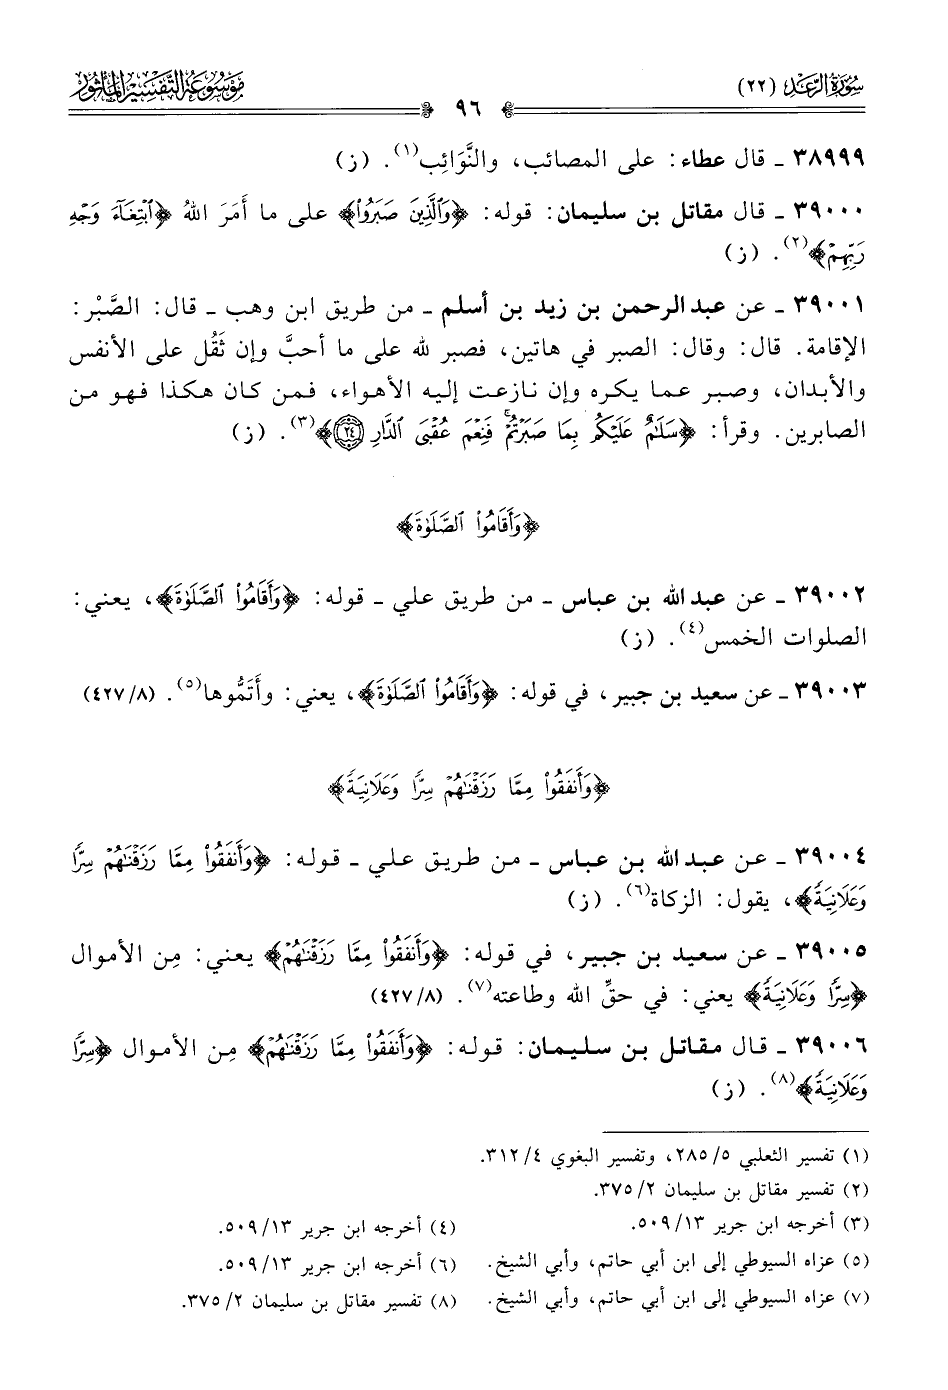 سُورَةُ الرَّعْدِ (٢٢)
٩٦
مَوْسُوعَةُ التَّفْسِيْرِ المَأْثُورِ
٣٨٩٩٩ ـ قال عطاء: على المصائب، والنَّوَائِب(١). (ز)
٣٩٠٠٠ ـ قال مقاتل بن سليمان: قوله: ﴿وَٱلَّذِينَ صَبَرُواْ﴾ على ما أَمَرَ اللهُ ﴿ٱبْتِغَآءَ وَجْهِ
رَبِّهِمْ﴾(٢). (ز)
٣٩٠٠١ ـ عن عبد الرحمن بن زيد بن أسلم ـ من طريق ابن وهب ـ قال: الصَّبْر:
الإقامة. قال: وقال: الصبر في هاتين، فصبر لله على ما أحبَّ وإن ثَقُل على الأنفس
والأبدان، وصبر عما يكره وإن نازعت إليه الأهواء، فمن كان هكذا فهو من
الصابرين. وقرأ: ﴿سَلَٰمٌ عَلَيْكُم بِمَا صَبَرْتُمْ ۚ فَنِعْمَ عُقْبَى ٱلدَّارِ ٢٤﴾(٣). (ز)
﴿وَأَقَامُواْ ٱلصَّلَوٰةَ﴾
٣٩٠٠٢ ـ عن عبد الله بن عباس ـ من طريق علي ـ قوله: ﴿وَأَقَامُواْ ٱلصَّلَوٰةَ﴾، يعني:
الصلوات الخمس(٤). (ز)
٣٩٠٠٣ ـ عن سعيد بن جبير، في قوله: ﴿وَأَقَامُواْ ٱلصَّلَوٰةَ﴾، يعني: وأَتَمُّوها(٥). (٨/ ٤٢٧)
﴿وَأَنفَقُواْ مِمَّا رَزَقْنَٰهُمْ سِرًّا وَعَلَانِيَةً﴾
٣٩٠٠٤ ـ عن عبد الله بن عباس ـ من طريق علي ـ قوله: ﴿وَأَنفَقُواْ مِمَّا رَزَقْنَٰهُمْ سِرًّا
وَعَلَانِيَةً﴾، يقول: الزكاة(٦). (ز)
٣٩٠٠٥ ـ عن سعيد بن جبير، في قوله: ﴿وَأَنفَقُواْ مِمَّا رَزَقْنَٰهُمْ﴾ يعني: مِن الأموال
﴿سِرًّا وَعَلَانِيَةً﴾ يعني: في حقِّ الله وطاعته(٧). (٨/ ٤٢٧)
٣٩٠٠٦ ـ قال مقاتل بن سليمان: قوله: ﴿وَأَنفَقُواْ مِمَّا رَزَقْنَٰهُمْ﴾ مِن الأموال ﴿سِرًّا
وَعَلَانِيَةً﴾(٨). (ز)
(١) تفسير الثعلبي ٥/ ٢٨٥، وتفسير البغوي ٤/ ٣١٢.
(٢) تفسير مقاتل بن سليمان ٢/ ٣٧٥.
(٣) أخرجه ابن جرير ١٣/ ٥٠٩. (٤) أخرجه ابن جرير ١٣/ ٥٠٩.
(٥) عزاه السيوطي إلى ابن أبي حاتم، وأبي الشيخ. (٦) أخرجه ابن جرير ١٣/ ٥٠٩.
(٧) عزاه السيوطي إلى ابن أبي حاتم، وأبي الشيخ. (٨) تفسير مقاتل بن سليمان ٢/ ٣٧٥.